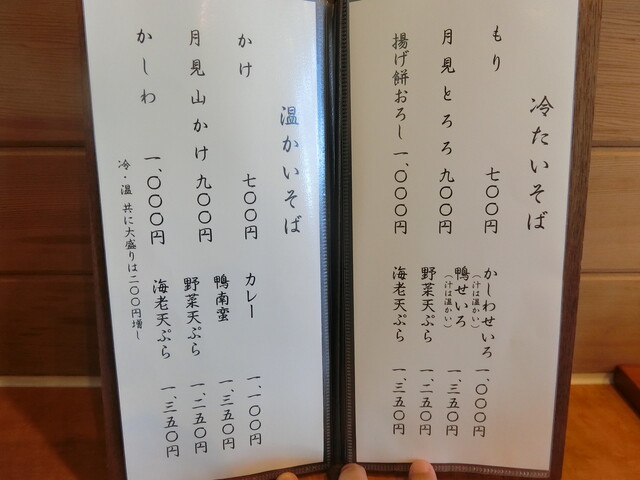 冷たいそば
もり 七〇〇円
月見とろろ 九〇〇円
揚げ餅おろし 一、〇〇〇円
かしわせいろ 一、〇〇〇円
(汁は温かい)
鴨せいろ 一、三五〇円
(汁は温かい)
野菜天ぷら 一、二五〇円
海老天ぷら 一、三五〇円
温かいそば
かけ 七〇〇円
月見山かけ 九〇〇円
かしわ 一、〇〇〇円
カレー 一、一〇〇円
鴨南蛮 一、三五〇円
野菜天ぷら 一、二五〇円
海老天ぷら 一、三五〇円
冷・温 共に大盛りは二〇〇円増し